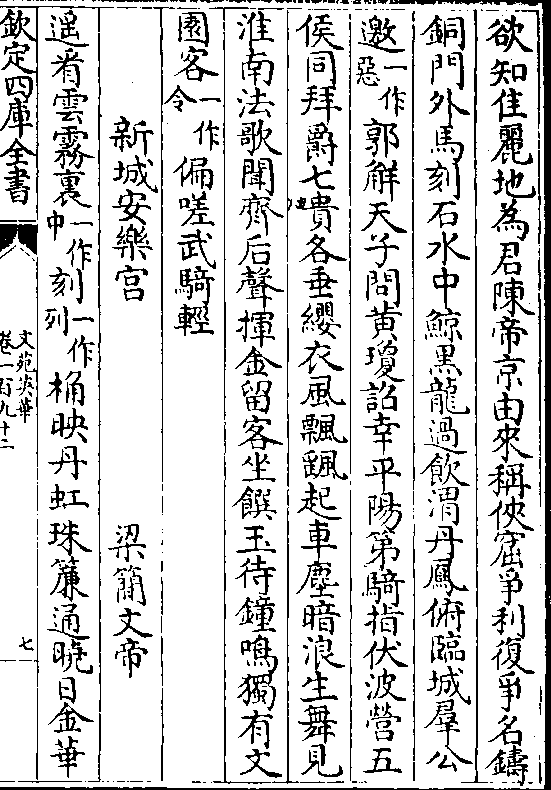 欲知佳麗地為君陳帝京由來稱俠窟爭利復爭名鑄
銅門外馬刻石水中鯨黑龍過飲渭丹鳳俯臨城羣公
邀一作惡郭解天子問黄瓊詔幸平陽第騎指伏波營五
侯同拜爵七貴各垂纓衣風飄飖起車塵暗浪生舞見
淮南法歌聞齊后聲揮金留客坐饌玉待鐘鳴獨有文
園客一作令偏嗟武騎輕
新城安樂宫
梁簡文帝
遥看雲霧裏一作中刻一作列桷映丹虹珠簾通曉日金華
欽定四庫全書
文苑英華
卷一百九十二
七